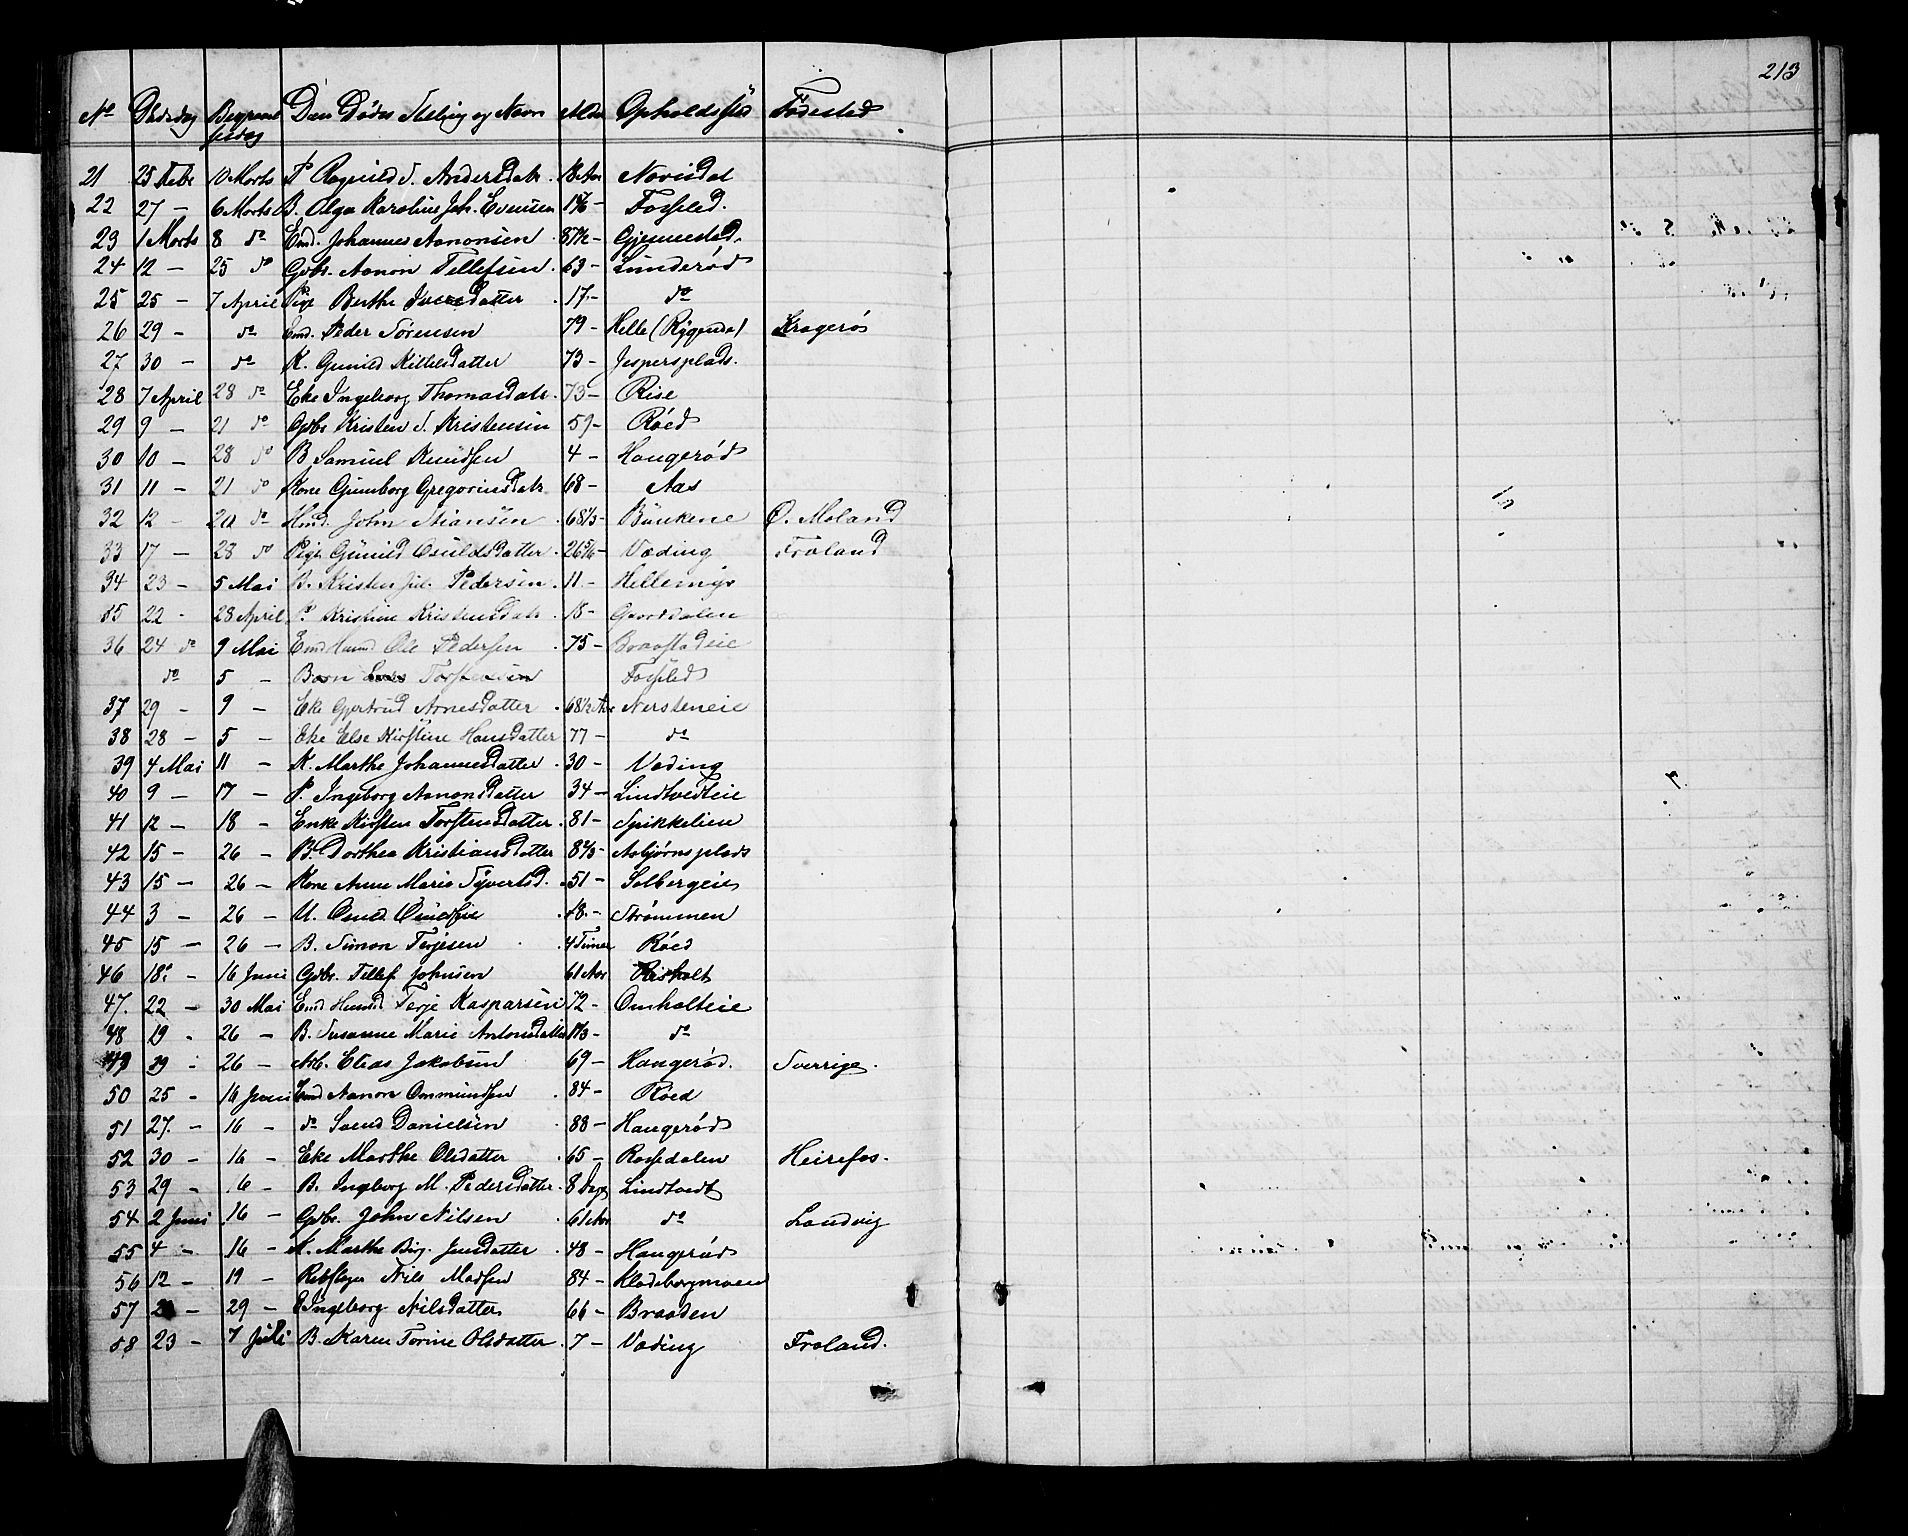 213
No Dødsdag Begravelsesdag Den Dødes Stilling og Navn Alder Opholdssted Fødested
21 25 Febr 10 Marts P Ragnild S. Andersdatr. 18 Aar Navisdal
22 27 - 6 Marts B. Olga Karoline Joh. Evensen Fosseled.
23 1 Marts 8 do Emd. Johannes Aanonsen 87½ - Gjennestad.
24 12 - 25 do Gvbr. Aanon Tellefsen. 63 - Lunderød
25 25 - 7 April Pige Berthe Iversdatter 17 - do
26 29 - do Emd. Peder Sørensen 79 - Helle (Rygende) Kragerø
27 30 - do K. Gunild Kittelsdatter 73 - Jespersplads.
28 7 April 28 do Eke Ingeborg Thomasdatr. 73 - Rise
29 9 - 21 do Gvbr Kristen S. Kristensen 59 - Røed
30 10 - 28 do B Samuel Knudsen 4 - Haugerød
31 11 - 21 do Kone Gunborg Gregoriusdatr 68 - Aas
32 12 - 20 do Hmd. John Stiansen 68 1/3 - Bunkene Ø. Moland
33 17 - 28 do Pige Gunild Osuldsdatter 26 5/6 - Væding Froland
34 23 - 5 Mai B. Kristen Jul. Pedersen 11 - Hellemyr
35 22 - 28 April P. Kristine Kristensdatr 18 -
36 24 do 9 Mai Emd Huusmd Ole Pedersen 75 - Braastadeie
do 5 - Barn Torstensen Fosseled
37 29 - 9 - Eke Gjertrud Arnesdatter 68½ Aar Nersteneie
38 28 - 5 - Eke Else Kirstine Hansdatter 77 - do
39 4 Mai 11 - K. Marthe Johannesdatter 30 - Væding
40 9 - 17 - P. Ingeborg Aanonsdatter 34 - Lindtvedteie
41 12 - 18 - Enke Kirsten Torstensdatter 81 - Spikkelien
42 15 - 26 - B. Dorthea Kristiansdatter 8 2/3 - Asbjørnsplads
43 15 - 26 - Kone Anne Marie Syvertsd. 51 - Solbergeie
44 3 - 26 - U. 18 - Strømmen
45 15 - 26 - B. Simon Terjesen 4 Timer Røed
46 18 - 16 Juni Gvbr. Tellef Johnsen 61 Aar Risholt
47. 22 - 30 Mai Emd Huusmd Terje Kasparsen 72 - Omholteie
48 19 - 26 - B. Susanne Marie Antonsdatter do
49 19 - 26 - Arb. Elias Jakobsen 69 - Haugerød. Sverrige.
50 25 - 16 Juni Emd Aanon Ommundsen 84 - Røed
51 27. - 16 - do Svend Danielsen 88 - Haugerød
52 30 - 16 - Eke Marthe Olsdatter 65 - Rossedalen Heirefos.
53 29 - 16 - B. Ingeborg M. Pedersdatter 8 Dage Lindtvedt
54 2 Juni 16 - Gvbr. John Nilsen 61 Aar do Landvig
55 4 - 16 - K. Marthe Birg. Jensdatter 48 - Haugerød
56 12 - 19 - Rebslager Nils Madsen 84 - Kladebergmoen
57 - 29 - E Ingeborg Nilsdatter 66 - Braaden
58 23 - 7 Juli B. Karen Torine Olsdatter 7 - Væding Froland.